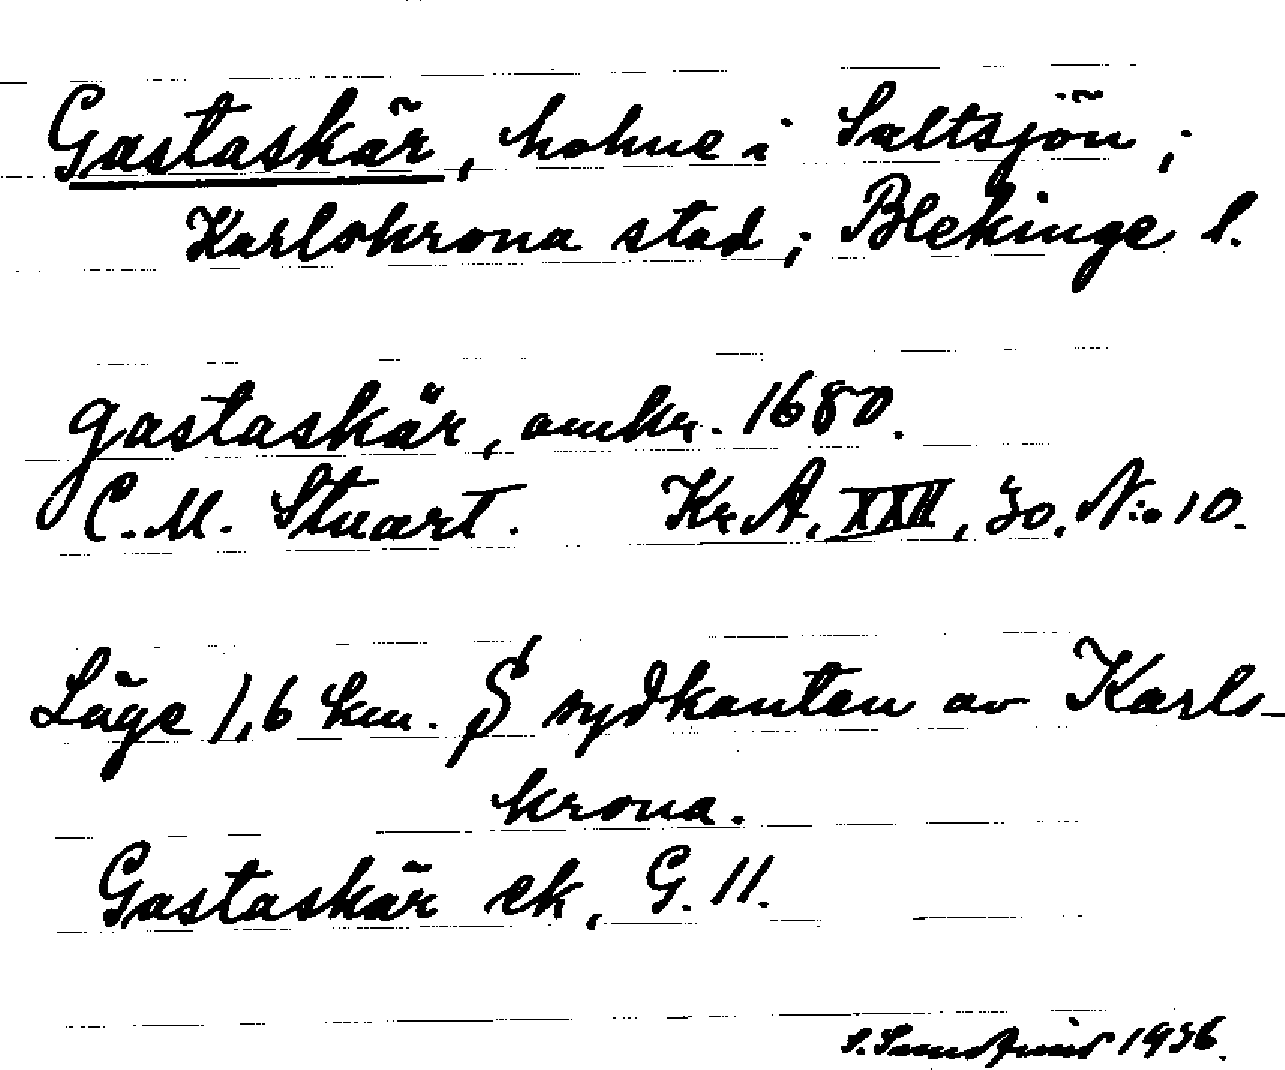 Gastaskär, holme i Saltsjön;
Karlskrona stad; Blekinge l.
gastaskär, omkr. 1680.
C. M. Stuart. Kr. A. XXII, 30. No 10.
Läge 1,6 km. S sydkanten av Karls-
krona.
Gastaskär ek, G. 11.
1936.